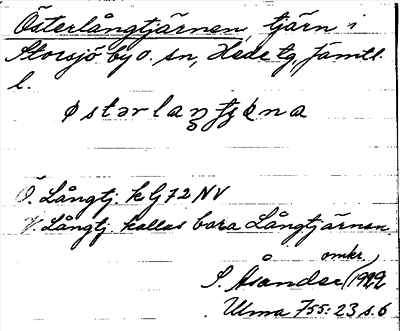 Österlångtjärnen, tjärn i
Storsjö by o. sn, Hede tg, Jämtl.
l.
østərlaŋtjɛna
Ö. Långtj. k. G 72 NV
V. Långtj. kallas bara Långtjärnen.
omkr.
S. Åsander (1922)
Ulma 755:23 s. 6